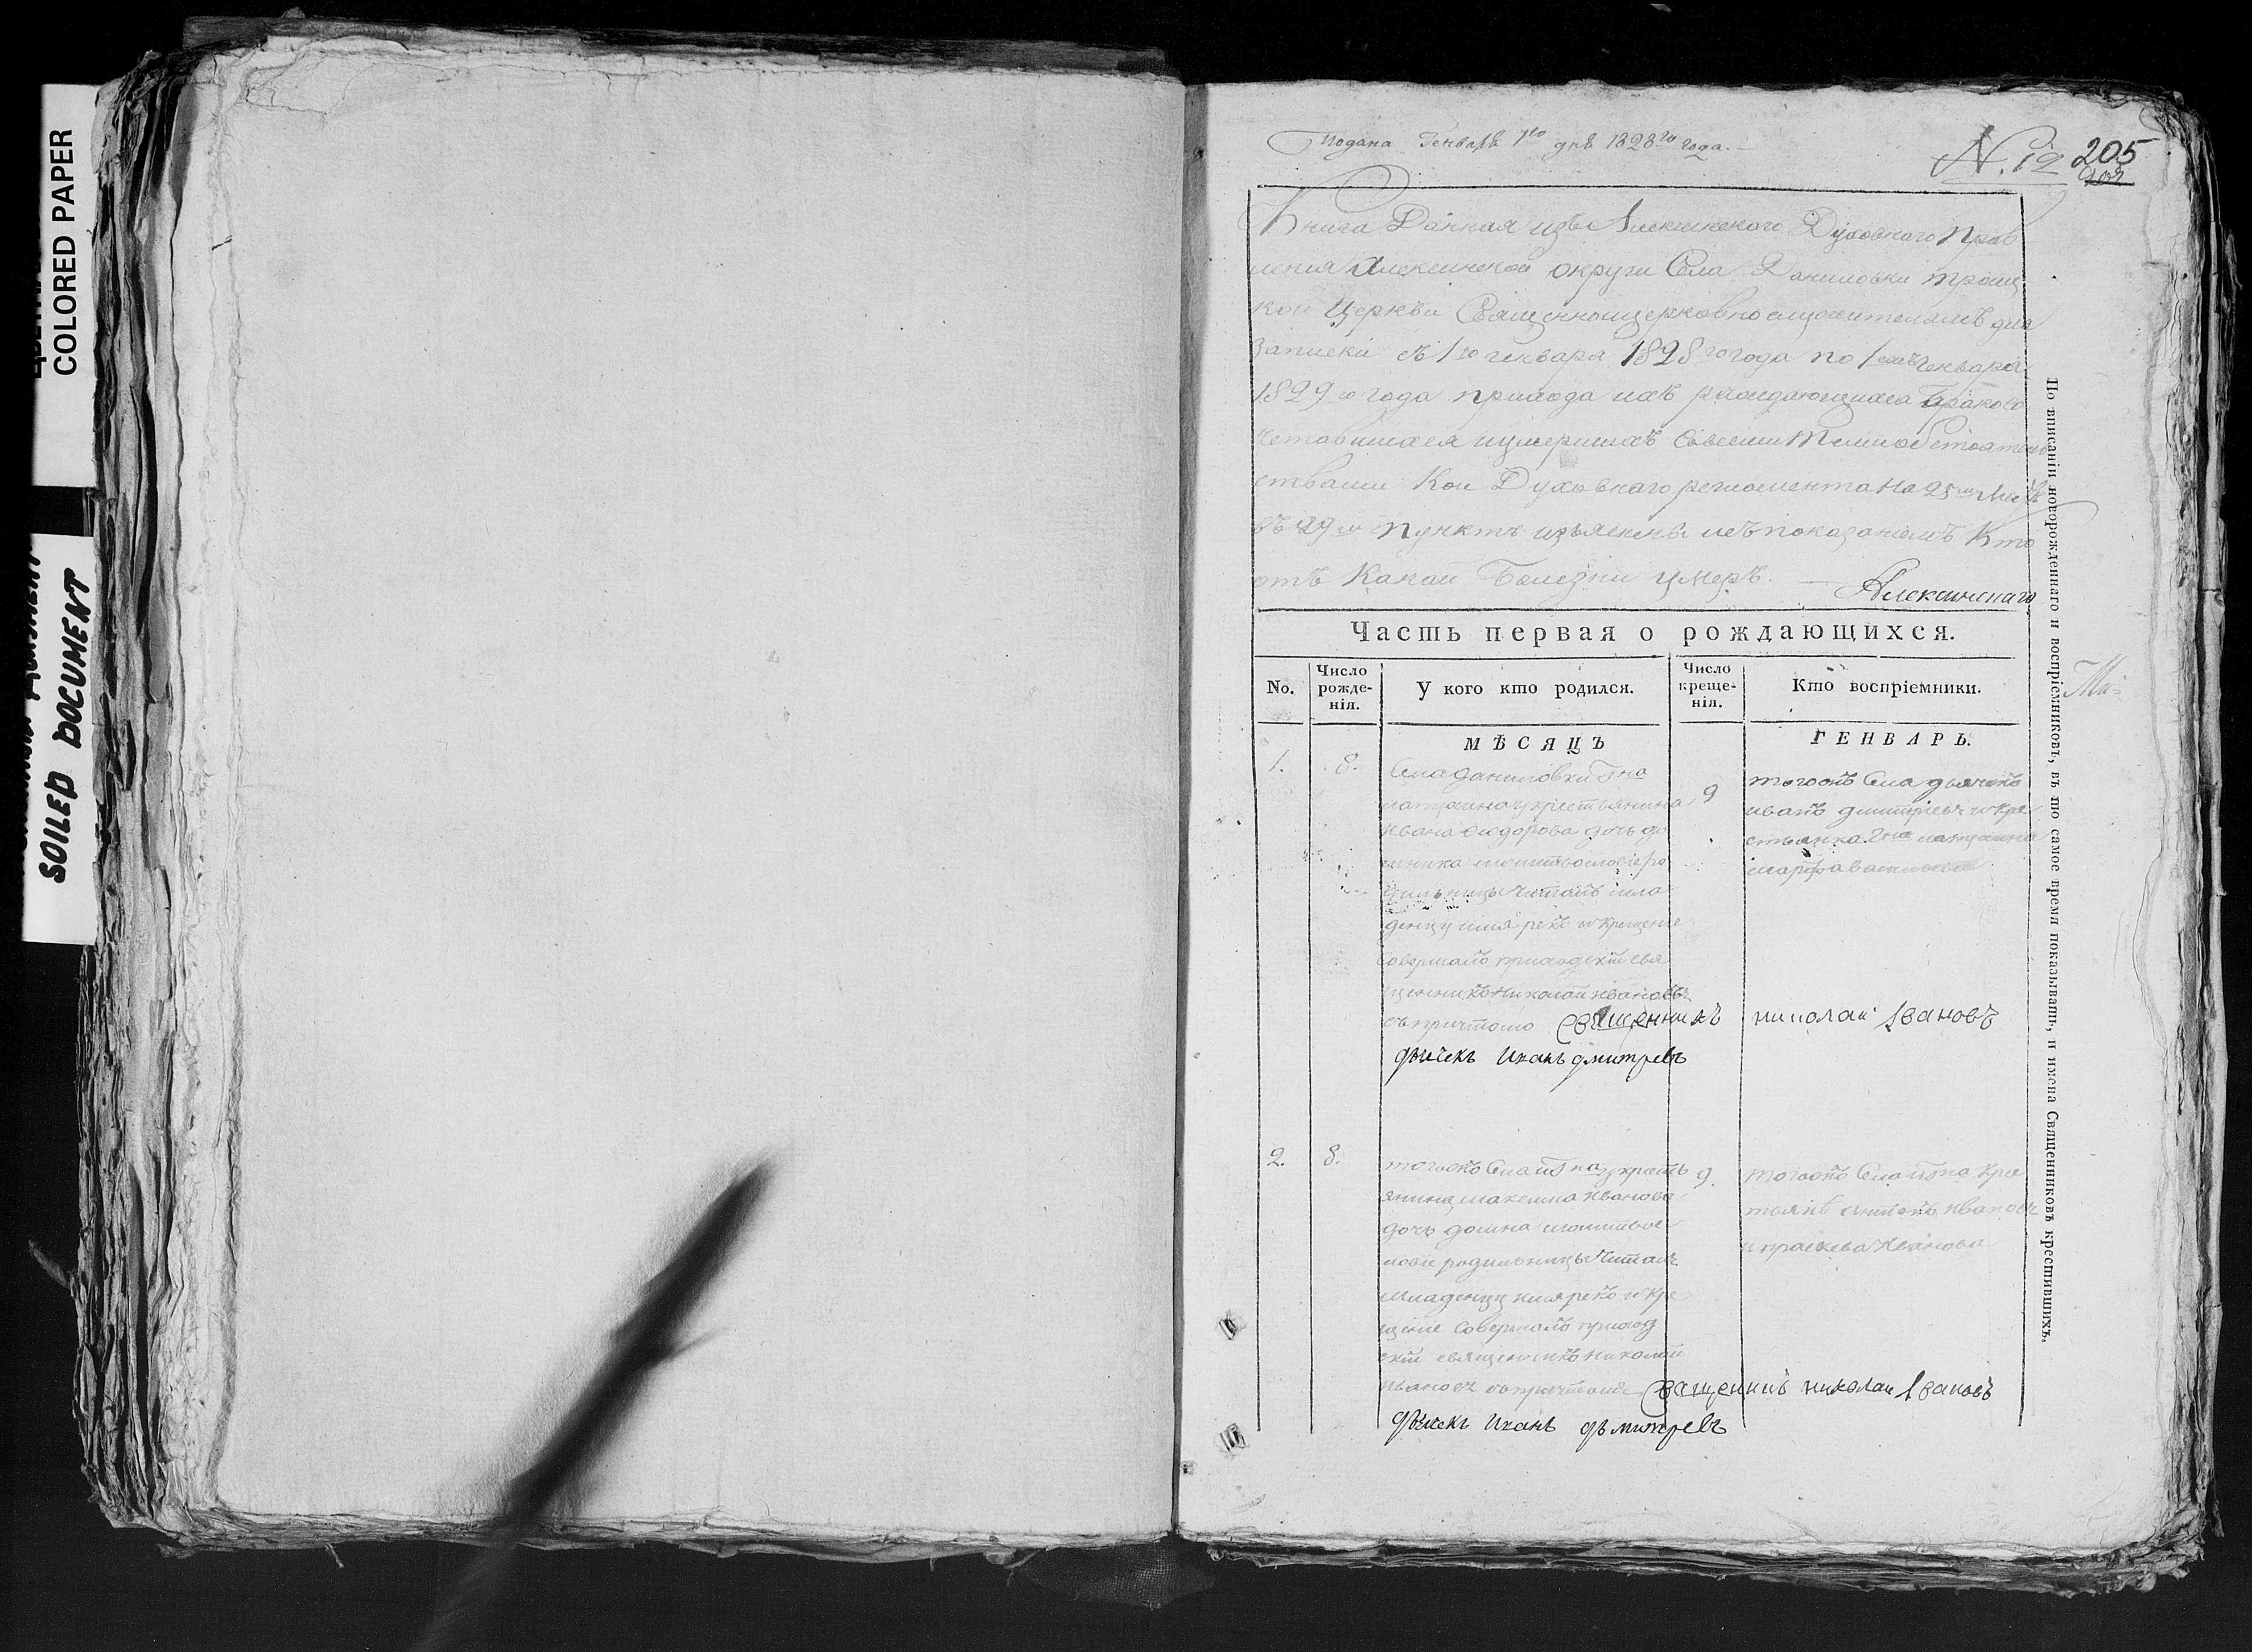 COLORED PAPER
SOILED DOCUMENT
Подана Генваря 1го дня 1828го года.
N. 12
205
Книга Данная изъ Алексинского Духовнаго Прав
ления Алексинской округи Села Даниловки троиц
кой Церкви Священноицерковнослужителямъ для
Записки съ 1го генваря 1828го года по генваря
1829го года прихода ихъ раждающихся Браково
четавшихся иумершихъ Совсеми Теми обстоятель
ствами Кои Духовнаго регламента на 25
въ 29м пункте изъяснены показаниемъ Кто
отъ Какой Болезни умеръ. — Алексинскаго
Часть первая о рождающихся.
No.
Число рожде- нія.
У кого кто родился.
Число креще- нія.
Кто воспріемники.
МѢСЯЦЪ
ГЕНВАРЬ.
1.
8.
Села даниловки Гна
крестьянина
Ивана Федорова дочь до
мника молитвословіе ро
дильницы Читалъ мла
денцу имя рекъ и крещение
Совершалъ приходскій свя
щенникъ Николай Ивановъ
съ причтомъ Священникъ николай Ивановъ
дьячекъ Иванъ дмитревъ
9
тогожъ Села дьячекъ
иванъ дмитріевъ и кре
стьянка Гна
марфа
2.
8.
тогожъ Села Гна укресть
янина максима Иванова
дочь домна молитвос
ловіе родильницы Читалъ
Младенцу имя рекъ и кре
щеніе Совершалъ приход
скій священникъ николай
Ивановъ съ причтомъ Священникъ николай Ивановъ
дьячекъ Иванъ дьмитревъ
9.
тогожъ Села Гна Кре
Ивановъ
и праскева Иванова
По вписаніи новорожденнаго и воспріемниковъ, въ то самое время показывать, и имена Священниковъ крестившихъ.